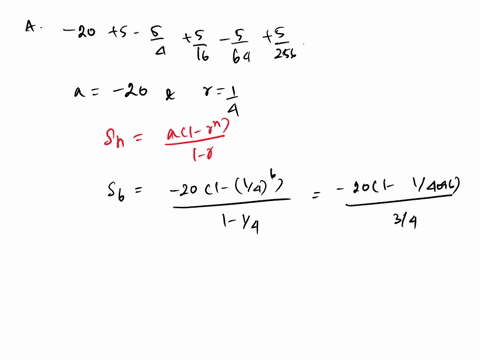 A. -20 +5 - 5/4 + 5/16 - 5/64 + 5/256.
a = -20 & r = 1/4
Sn = a(1-r^n)/1-r
S6 = -20(1-(1/4)^6)/1-1/4 = -20(1- 1/4096)/3/4